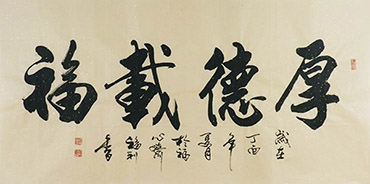 厚德載福
歲在
丁酉
年
夏月
於福
心齋